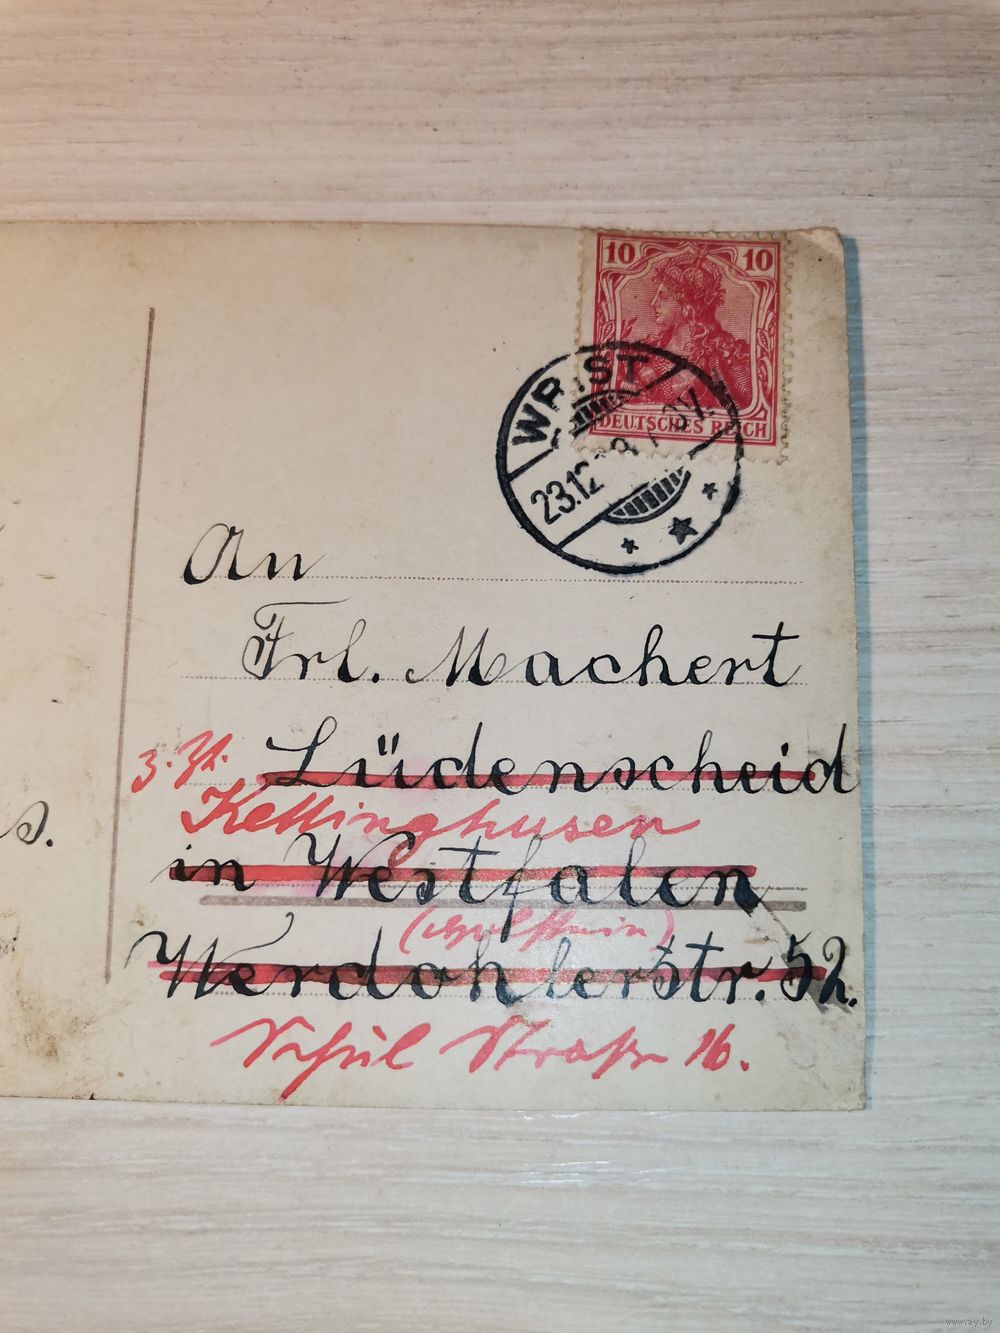 10 10
DEUTSCHES REICH
WRIST
23.12
An
Frl. Machert
z. Zt.
Lüdenscheid
Kellinghusen
in Westfalen
(Holstein)
Werdohlerstr. 52.
Schül Straße 16.
s.
www.ay.by